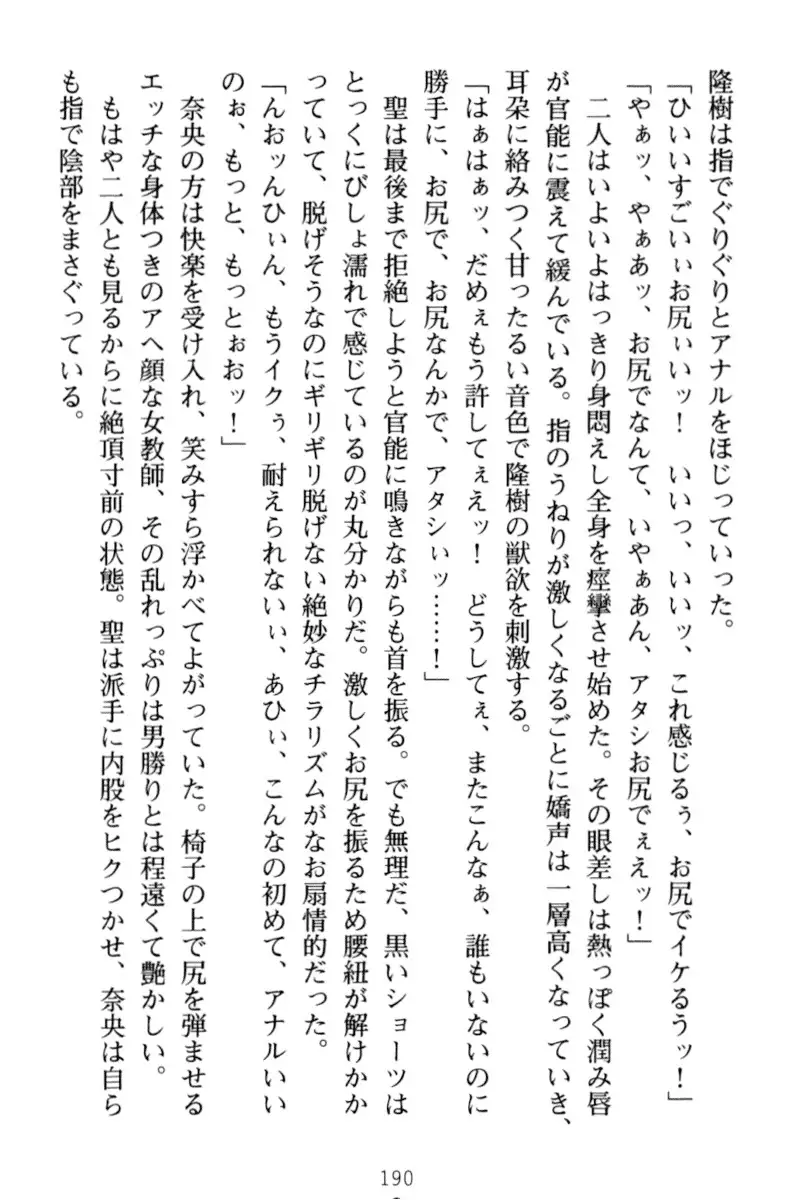 隆樹は指でぐりぐりとアナルをほじっていった。
「ひいいすごいぃお尻ぃいッ！　いいっ、いいッ、これ感じるぅ、お尻でイケるうッ！」
「やぁッ、やぁあッ、お尻でなんて、いやぁあん、アタシお尻でぇえッ！」
二人はいよいよはっきり身悶えし全身を痙攣させ始めた。その眼差しは熱っぽく潤み唇
が官能に震えて緩んでいる。指のうねりが激しくなるごとに嬌声は一層高くなっていき、
耳朶に絡みつく甘ったるい音色で隆樹の獣欲を刺激する。
「はぁはぁッ、だめぇもう許してぇえッ！　どうしてぇ、またこんなぁ、誰もいないのに
勝手に、お尻で、お尻なんかで、アタシぃッ……！」
聖は最後まで拒絶しようと官能に鳴きながらも首を振る。でも無理だ、黒いショーツは
とっくにびしょ濡れで感じているのが丸分かりだ。激しくお尻を振るため腰紐が解けかか
っていて、脱げそうなのにギリギリ脱げない絶妙なチラリズムがなお扇情的だった。
「んおッんひぃん、もうイクぅ、耐えられないぃ、あひぃ、こんなの初めて、アナルいい
のぉ、もっと、もっとぉおッ！」
奈央の方は快楽を受け入れ、笑みすら浮かべてよがっていた。椅子の上で尻を弾ませる
エッチな身体つきのアヘ顔な女教師、その乱れっぷりは男勝りとは程遠くて艶かしい。
もはや二人とも見るからに絶頂寸前の状態。聖は派手に内股をヒクつかせ、奈央は自ら
も指で陰部をまさぐっている。
190